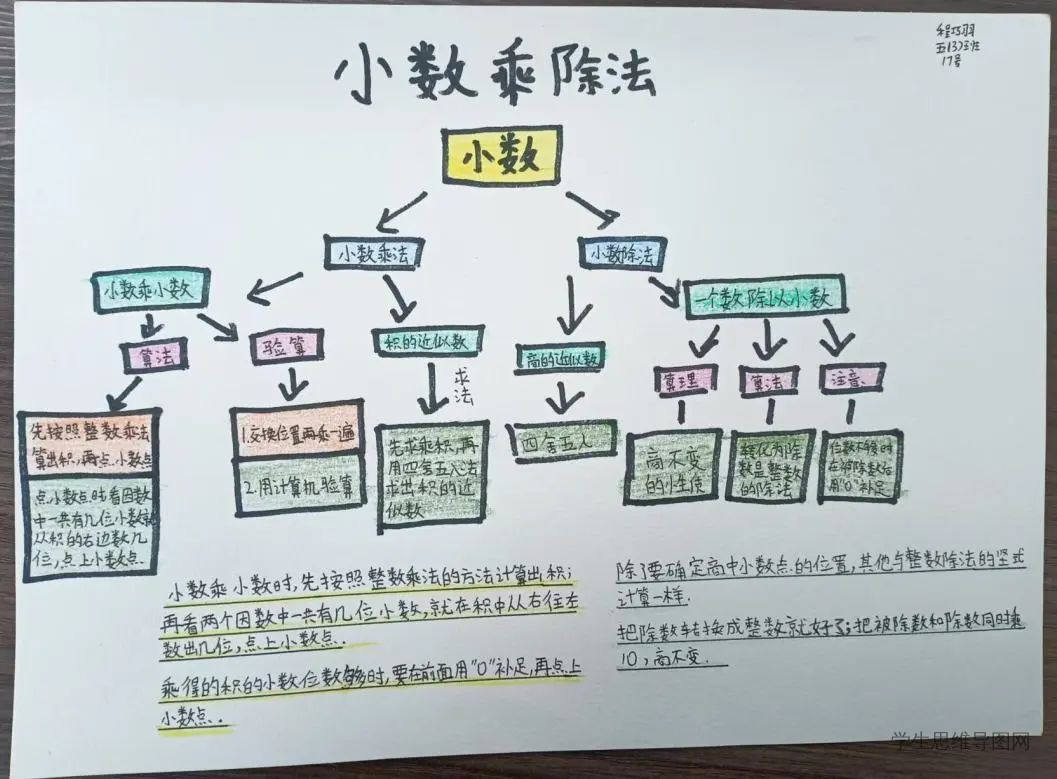 程巧羽
五(3)班
17号
小数乘除法
小数
小数乘法
小数除法
小数乘小数
一个数除以小数
算法
验算
积的近似数
商的近似数
求
法
算理
算法
注意
先按照整数乘法
算出积,再点小数点
点小数点时看因数
中一共有几位小数就
从积的右边数几
位,点上小数点.
1.交换位置再乘一遍
2.用计算机验算
先求乘积,再
用四舍五入法
求出积的近
似数
四舍五入
商不变
的性质
转化为除
数是整数
的除法
位数不够时
在被除数后
用"0"补足
小数乘小数时,先按照整数乘法的方法计算出积;
再看两个因数中一共有几位小数,就在积中从右往左
数出几位,点上小数点.
乘得的积的小数位数够时,要在前面用"0"补足,再点上
小数点.
除了要确定商中小数点的位置,其他与整数除法的竖式
计算一样.
把除数转换成整数就好了;把被除数和除数同时乘
10,商不变.
学生思维导图网